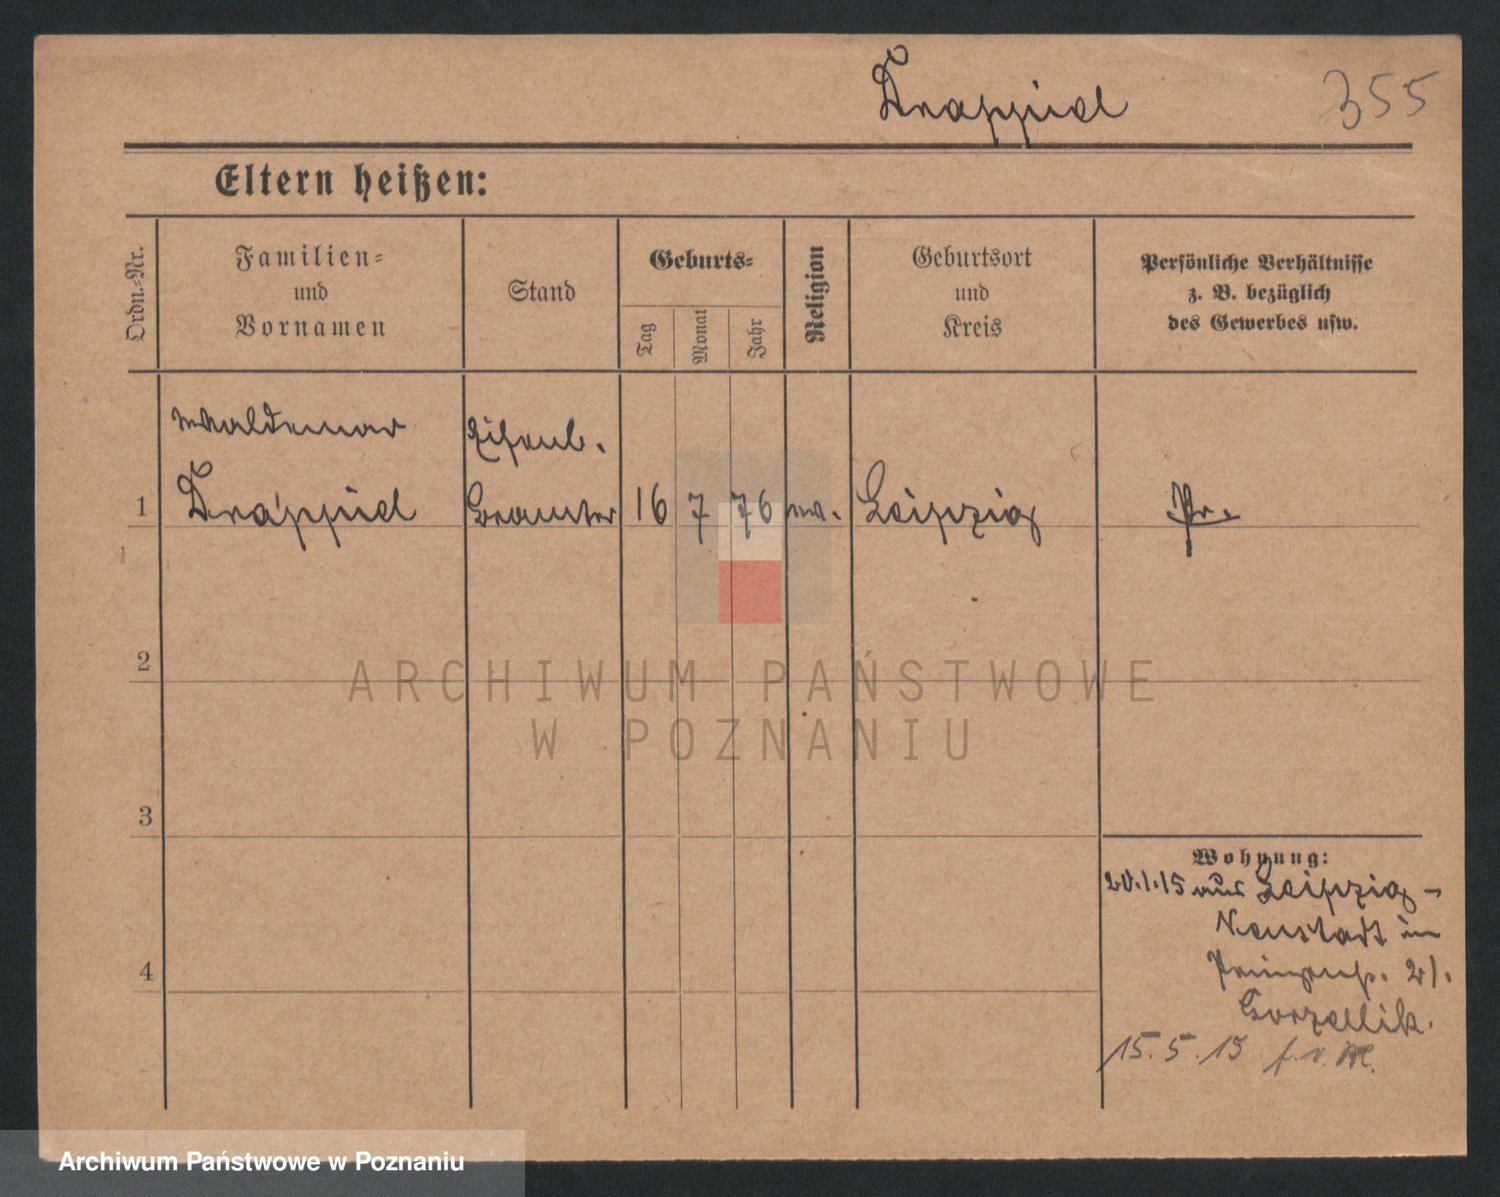 Krappid
355
Eltern heißen:
Ordn.-Nr.
Familien-
und
Vornamen
Stand
Geburts-
Tag
Monat
Jahr
Religion
Geburtsort
und
Kreis
Persönliche Verhältnisse
z. B. bezüglich
des Gewerbes usw.
Waldemar
Eisenb.
1
Beamter
16
7
76
Leipzig
Pr.
2
3
4
ARCHIWUM PAŃSTWOWE
W POZNANIU
Wohnung:
20.1.15 aus Leipzig-
Neustadt in
21.
Gorzellik.
15.5.15
Archiwum Państwowe w Poznaniu